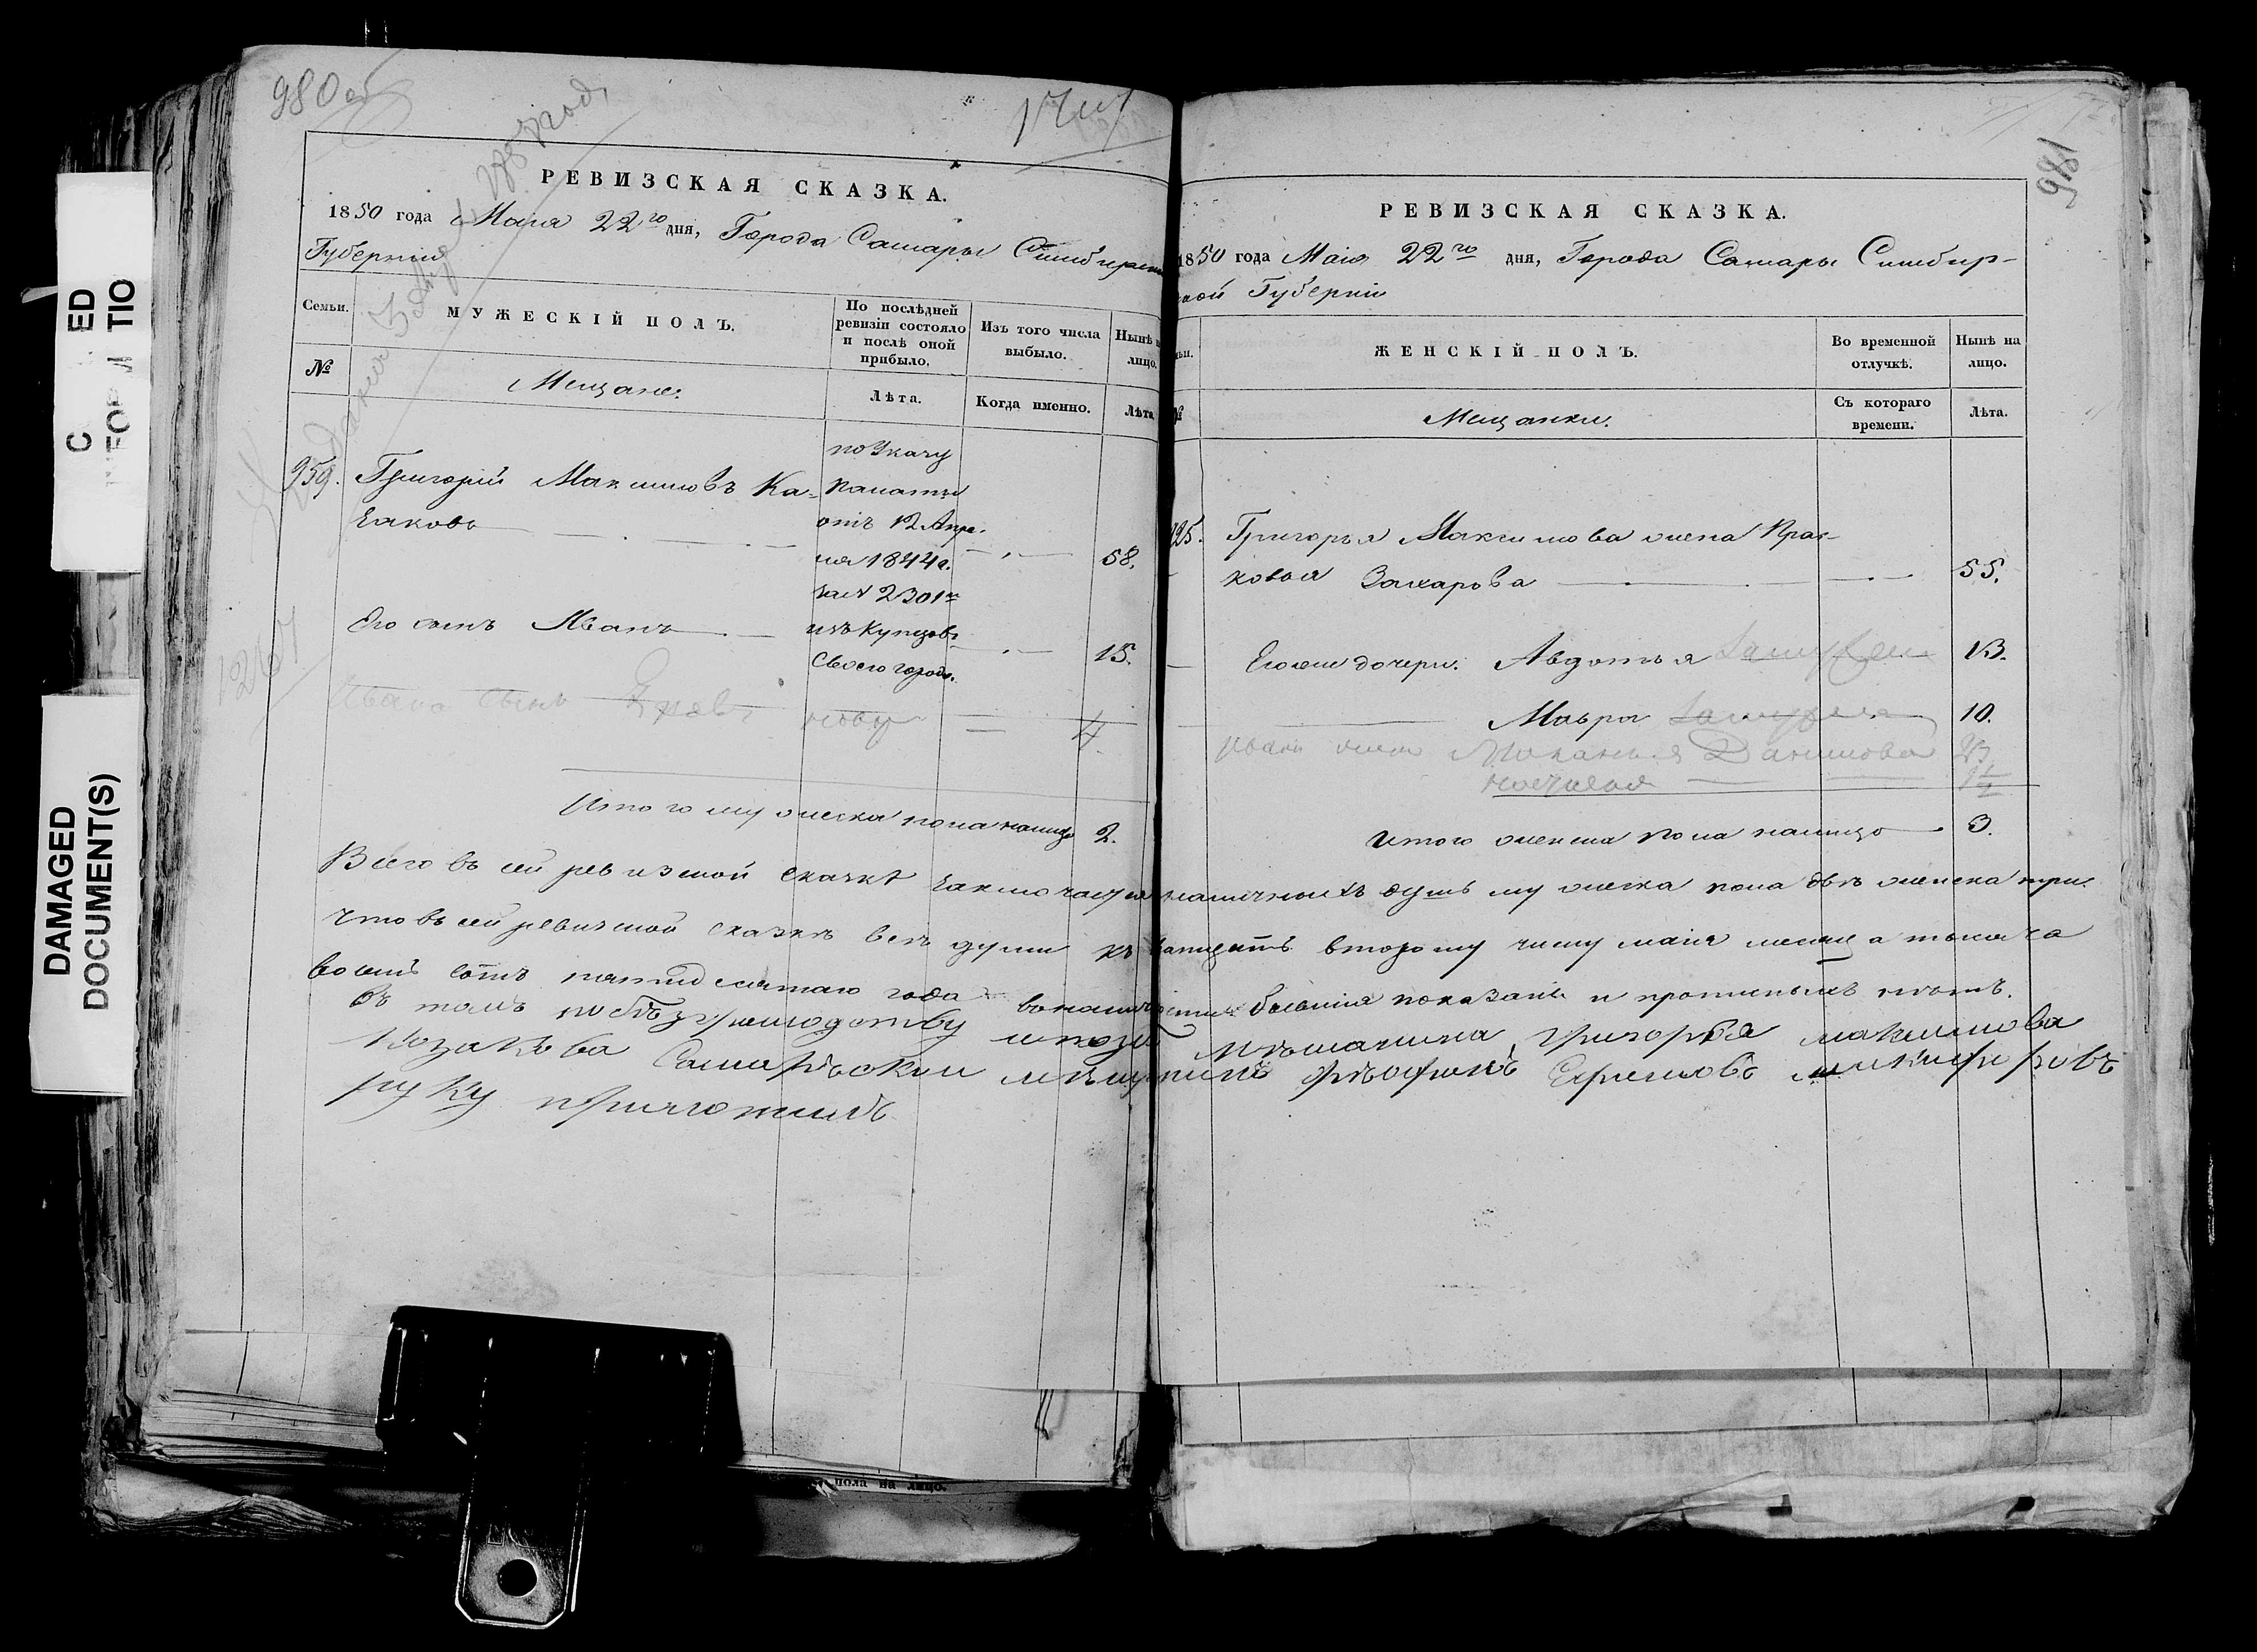 980 об
1858 год,
РЕВИЗСКАЯ СКАЗКА.
1850 года Маія 22го дня, Города Самары Симбирской
Губерніи
Семьи.
МУЖЕСКІЙ ПОЛЪ.
По послѣдней ревизіи состояло и послѣ оной прибыло.
Изъ того числа выбыло.
Нынѣ на лицо.
№
Мещане.
Лѣта.
Когда именно.
Лѣта
959. Григорій Максимовъ Ка-
заковъ
по Указу
палаты
отъ 12 Апре-
ля 1844 г.
за № 2301м
изъ Купцовъ
Своего города.
58.
Его сынъ Иванъ 15.
Ивана сынъ Яковъ новъ 4.
1267
Итого мужеска пола налицо 2.
981
РЕВИЗСКАЯ СКАЗКА.
1850 года Маія 22го дня, Города Самары Симбир-
ской Губерніи
ЖЕНСКІЙ ПОЛЪ.
Во временной отлучкѣ.
Нынѣ на лицо.
№
Мещанки.
Съ котораго времени.
Лѣта.
Григорья Максимова жена Прас-
ковья Захарова 55.
Его же дочери: Авдотья замужем 13.
Мавра замужем 10.
Ивана жена Маланья Данилова 23
Итого женска пола налицо 3.
Всего въ сей ревизской сказкѣ заключается наличныхъ душъ мужеска пола двѣ женска три.
Что въ сей ревизской сказкѣ всѣ души къ двадцать второму числу маія месяца тысяча
восемь сотъ пятидесятаго года въ наличности бывшія показаны и прописныхъ нѣтъ.
Въ томъ по безграмотству мѣщанина Григорья Максимова
Козакова Самарьской мещанинъ Ефремовъ Никифоровъ
руку приложилъ
DAMAGED
DOCUMENT(S)
пола на лицо.